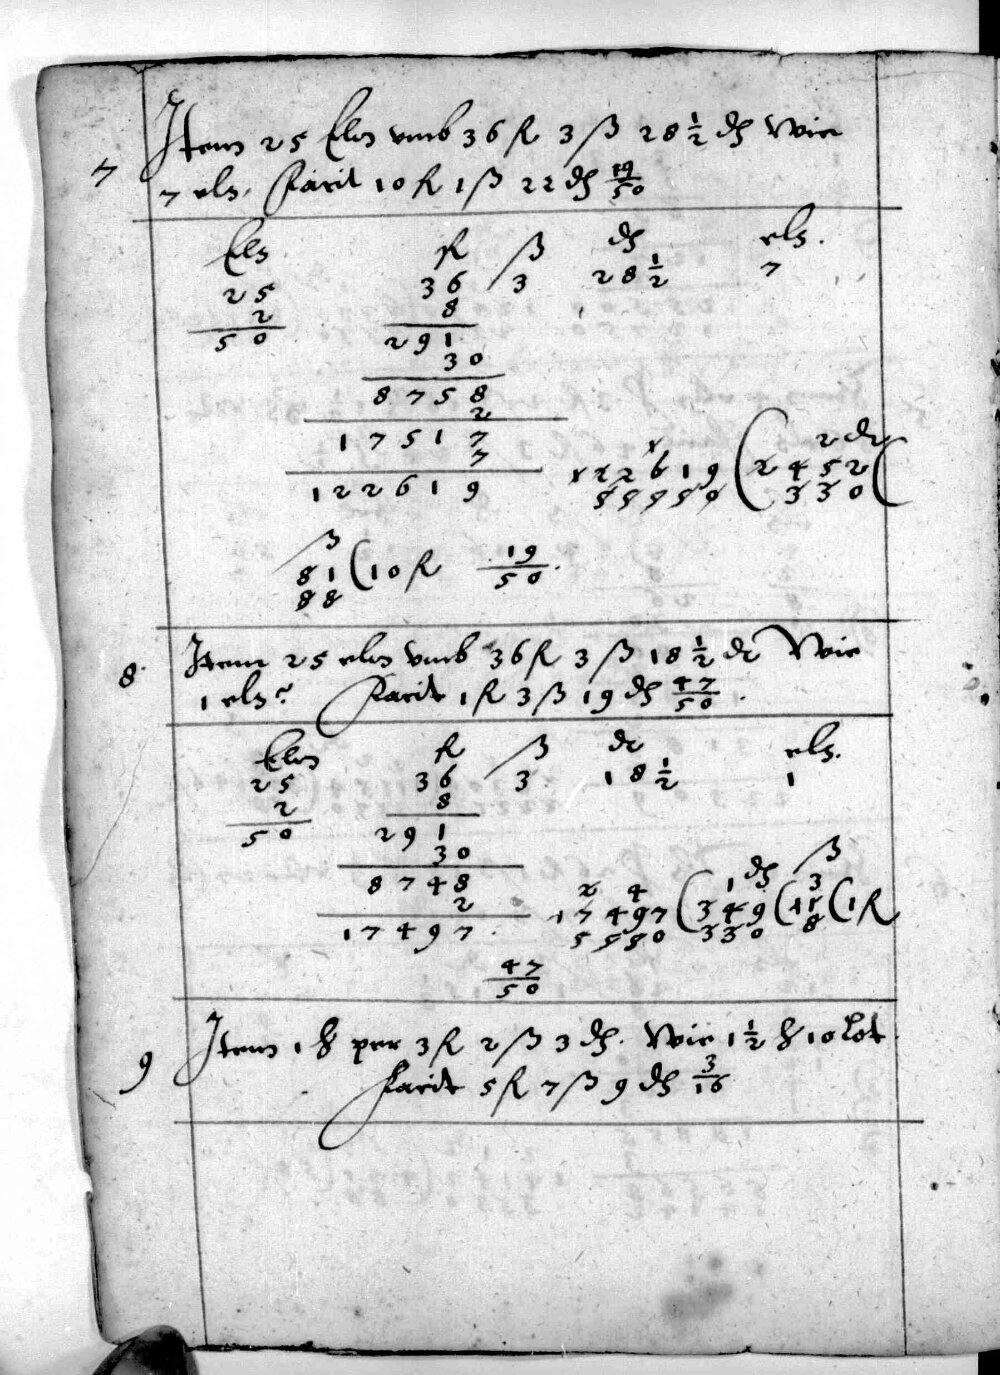 7 Item 25 Elen vmb 36 fl 3 ß 28 1/2 ₰ Wie
7 eln. Facit 10 fl 1 ß 22 ₰ 19/50
Eln fl ß ₰ eln.
25 36 3 28 1/2 7
2 8
50 291
30
8758
2
17517
7
122619
122619 ( 2452 (
330
ß
81 ( 10 fl 19/50.
88
8. Item 25 elen vmb 36 fl 3 ß 18 1/2 ₰ Wie
1 eln? Facit 1 fl 3 ß 19 ₰ 47/50.
Elen fl ß ₰ eln.
25 36 3 18 1/2 1
2 8
50 291
30
8748
2
17497 17497 ( 349 ( 11 ( 1 fl
5550 330 8
47/50
9 Item 1 ℔ per 3 fl 2 ß 3 ₰. Wie 1 1/2 ℔ 10 Lot
Facit 5 fl 7 ß 9 ₰ 3/16